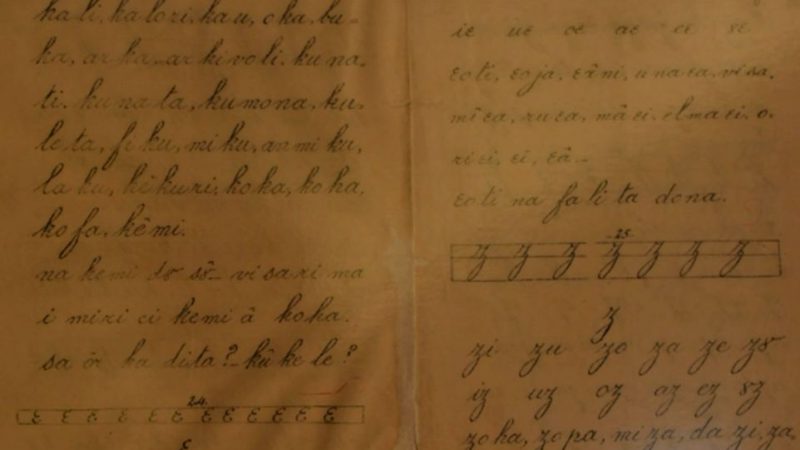 ka li, ka lo ri, ka u, o ka, bu-
ka, ar ka, ar ki vo li, ku na,
ti, ku na ta, ku mo na, ku,
le ta, fi ku, mi ku, an mi ku,
la ku, kê ku ri, ko ka, ko ha,
ko fa, kê mi.
na ke mi d8 s8_ vi sa ri ma
i miri ci kemi â koka.
sa ôr ka dita?_ kû ke le?
24.
ε ε ε ε ε ε ε ε ε ε ε
ε
iε uε oε aε eε 8ε
εo ti, εo ja, εâ ni, u na εa, vi sa,
mî εa, ru εa, mâ εi, el ma εi, o,
ri εi, εi, εâ_
εo ti na fa li ta do na.
25.
z z z z z z z
z
zi zu zo za ze z8
iz uz oz az ez 8z
zo ka, zo pa, mi za, da zi, za,